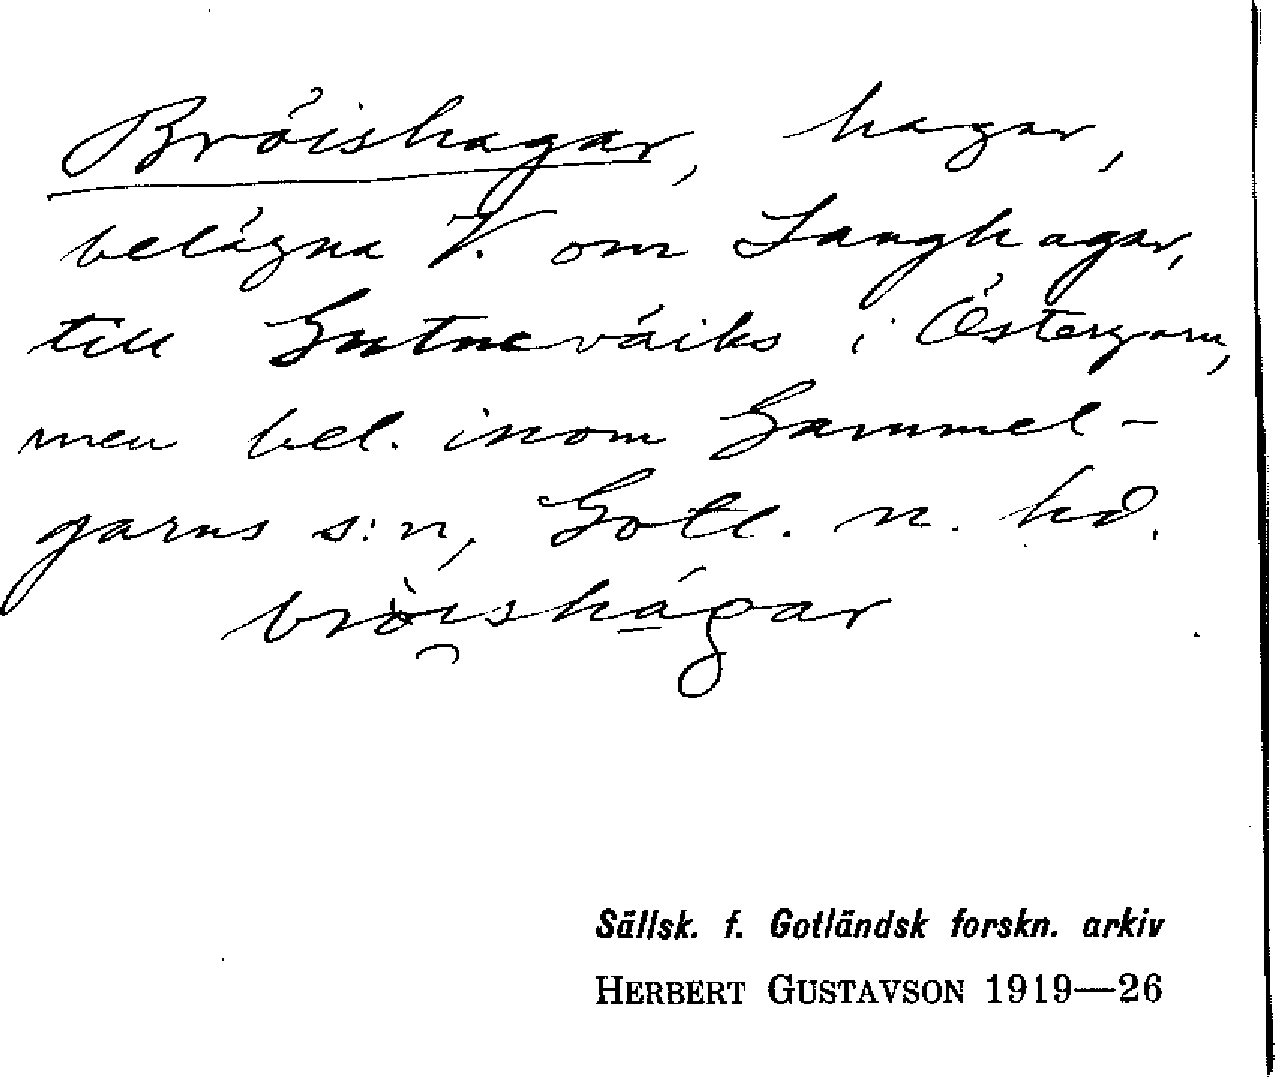 Bröishagar, hagar,
belägna V. om Langhagar,
till Gutneväiks i Östergarn,
men bel. inom Gammel-
garns s:n, Gotl. n. hd.
bròishágar
Sällsk. f. Gotländsk forskn. arkiv
HERBERT GUSTAVSON 1919—26